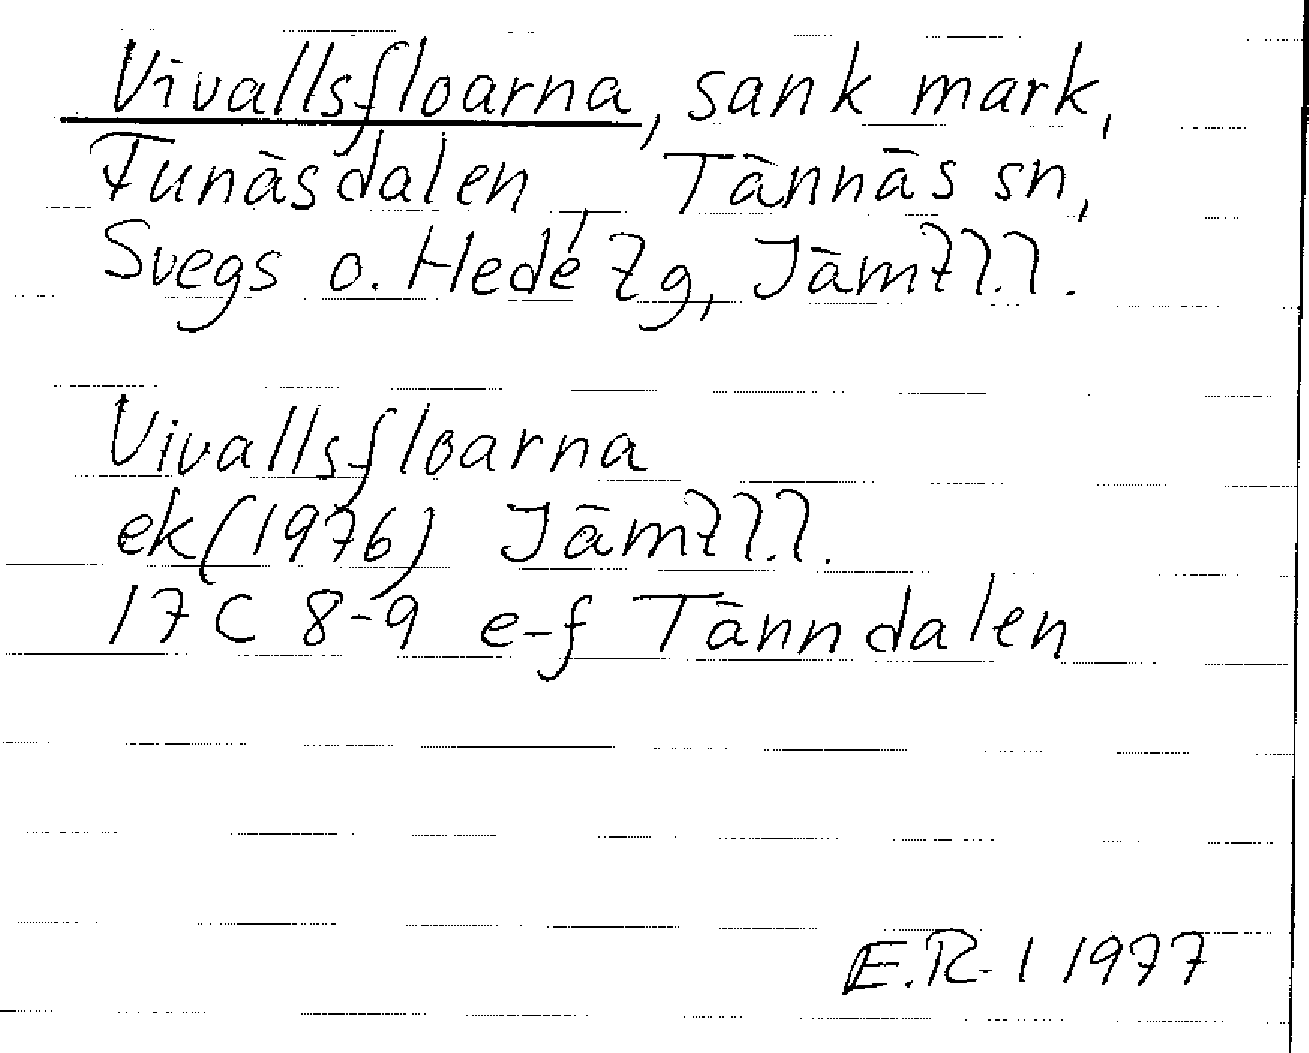 Vivallsfloarna, sank mark,
Funäsdalen, Tännäs sn,
Svegs o. Hede tg, Jämtl.l.
Vivallsfloarna
ek (1976) Jämtl.l.
17C 8-9 e-f Tänndalen
E.R. 1 1977